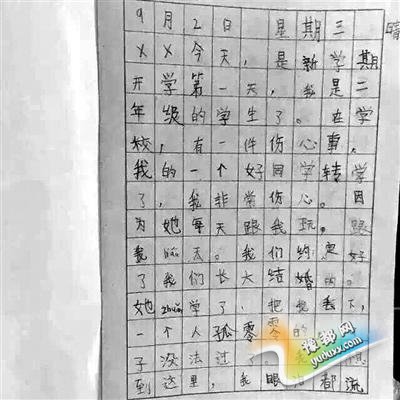 9月2日 星期三 晴
XX今天,是新学期
开学第一天,我是二
年级的学生了。在学
校,有一件伤心事,
我的一个好同学转学
了,我非常伤心。因
为她每天跟我玩。跟
我天。我们约好
了我们长大结婚的。
她zhuǎn学了,把我丢下,
一个人孤零零的
子没法过。想
到这里,我眼都流
豫都网
yuduxx.com